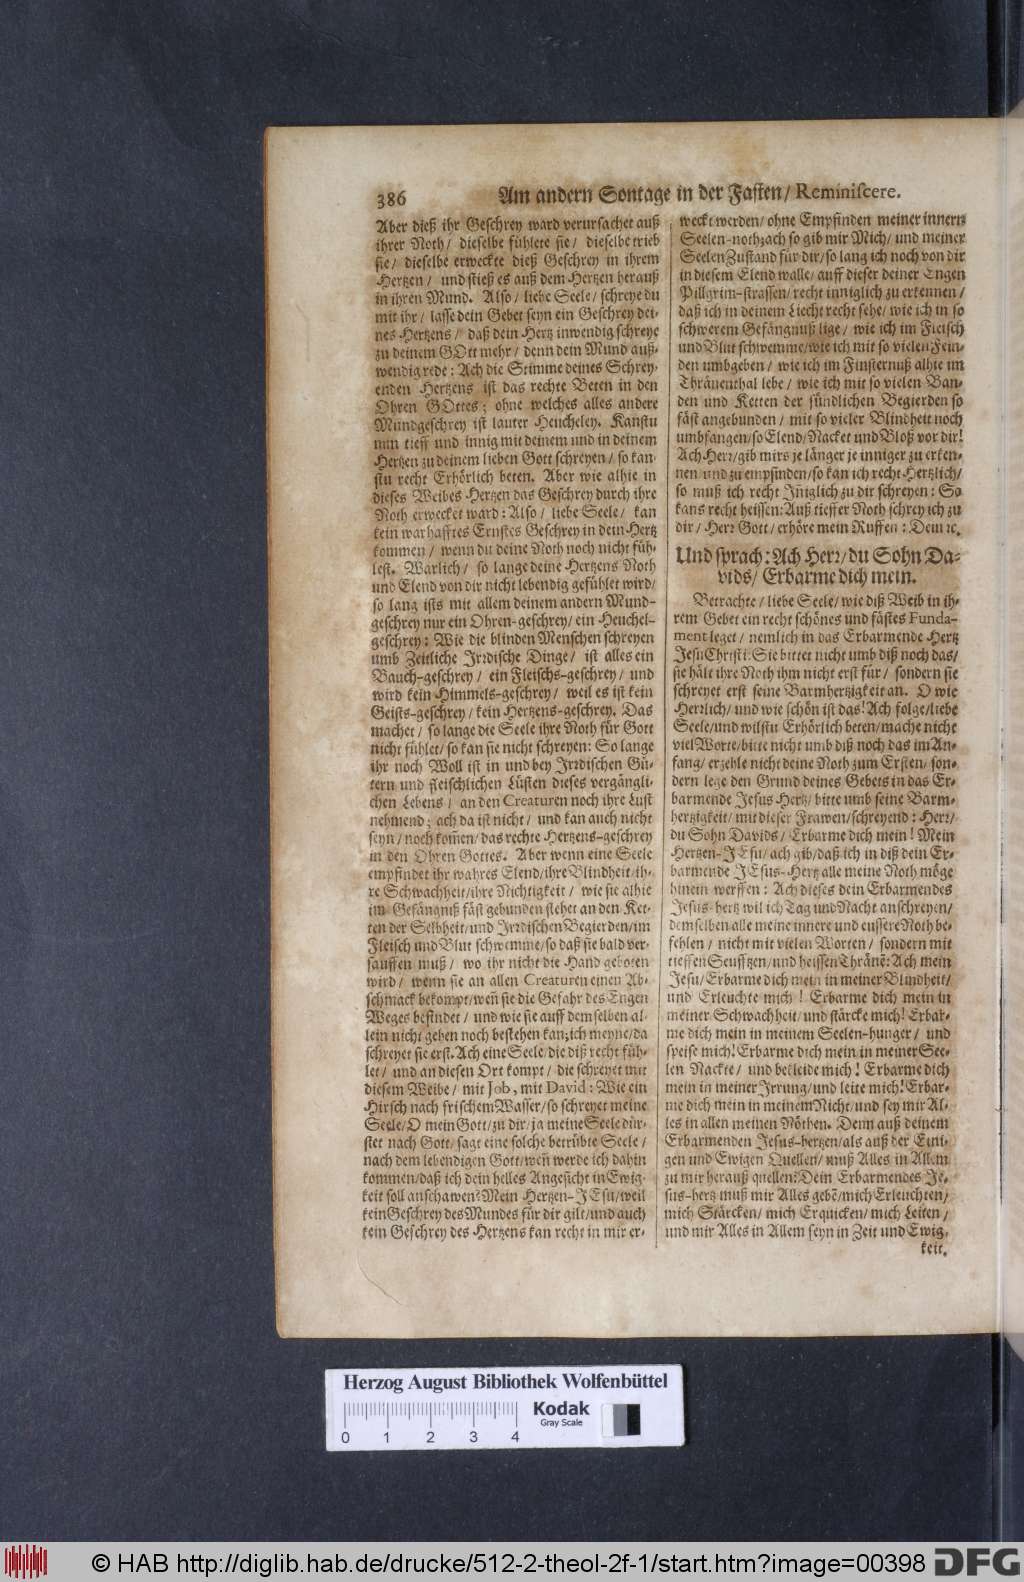 386
Am andern Sontage in der Fasten/ Reminiscere.
Aber dieß ihr Geschrey ward verursachet auß
ihrer Noth/ dieselbe fühlete sie/ dieselbe trieb
sie/ dieselbe erweckte dieß Geschrey in ihrem
Hertzen/ und stieß es auß dem Hertzen herauß
in ihren Mund. Also/ liebe Seele/ schreye du
mit ihr/ lasse dein Gebet seyn ein Geschrey dei-
nes Hertzens/ daß dein Hertz inwendig schreye
zu deinem GOtt mehr/ denn dein Mund auß-
wendig rede: Ach die Stimme deines Schrey-
enden Hertzens ist das rechte Beten in den
Ohren GOttes; ohne welches alles andere
Mundgeschrey ist lauter Heucheley. Kanstu
nun tieff und innig mit deinem und in deinem
Hertzen zu deinem lieben Gott schreyen/ so kan-
stu recht Erhörlich beten. Aber wie alhie in
dieses Weibes Hertzen das Geschrey durch ihre
Noth erwecket ward: Also/ liebe Seele/ kan
kein warhafftes Ernstes Geschrey in dein Hertz
kommen/ wenn du deine Noth noch nicht füh-
lest. Warlich/ so lange deine Hertzens Noth
und Elend von dir nicht lebendig gefühlet wird/
so lang ists mit allem deinem andern Mund-
geschrey nur ein Ohren-geschrey/ ein Heuchel-
geschrey: Wie die blinden Menschen schreyen
umb Zeitliche Irrdische Dinge/ ist alles ein
Bauch-geschrey/ ein Fleischs-geschrey/ und
wird kein Himmels-geschrey/ weil es ist kein
Geists-geschrey/ kein Hertzens-geschrey. Das
machet/ so lange die Seele ihre Noth für Gott
nicht fühlet/ so kan sie nicht schreyen: So lange
ihr noch Woll ist in und bey Irrdischen Gü-
tern und fleischlichen Lüsten dieses vergängli-
chen Lebens/ an den Creaturen noch ihre Lust
nehmend; ach da ist nicht/ und kan auch nicht
seyn/ noch kom̃en/ das rechte Hertzens-geschrey
in den Ohren Gottes. Aber wenn eine Seele
empfindet ihr wahres Elend/ ihre Blindheit/ ih-
re Schwachheit/ ihre Nichtigkeit/ wie sie alhie
im Gefängniß fäst gebunden stehet an den Ket-
ten der Selbheit/ und Irrdischen Begierden/ im
Fleisch und Blut schwemme/ so daß sie bald ver-
sauffen muß/ wo ihr nicht die Hand geboten
wird/ wenn sie an allen Creaturen einen Ab-
schmack bekompt/ weñ sie die Gefahr des Engen
Weges befindet/ und wie sie auff demselben al-
lein nicht gehen noch bestehen kan; ich meyne/ da
schreyet sie erst. Ach eine Seele/ die diß recht füh-
let/ und an diesen Ort kompt/ die schreyet mit
diesem Weibe/ mit Job, mit David: Wie ein
Hirsch nach frischem Wasser/ so schreyet meine
Seele/ O mein Gott/ zu dir/ ja meine Seele dür-
stet nach Gott/ sagt eine solche betrübte Seele/
nach dem lebendigen Gott/ weñ werde ich dahin
kommen/ daß ich dein helles Angesicht in Ewig-
keit soll anschawen? Mein Hertzen-JEsu/ weil
kein Geschrey des Mundes für dir gilt/ und auch
kein Geschrey des Hertzens kan recht in mir er-
weckt werden/ ohne Empfinden meiner innern
Seelen-noth; ach so gib mir Mich/ und meiner
Seelen Zustand für dir/ so lang ich noch von dir
in diesem Elend walle/ auff dieser deiner Engen
Pillgrim-strassen/ recht inniglich zu erkennen/
daß ich in deinem Liecht recht sehe/ wie ich in so
schwerem Gefängnuß lige/ wie ich im Fleisch
und Blut schwemme/ wie ich mit so vielen Fein-
den umbgeben/ wie ich im Finsternuß alhie im
Thränenthal lebe/ wie ich mit so vielen Ban-
den und Ketten der sündlichen Begierden so
fäst angebunden/ mit so vieler Blindheit noch
umbfangen/ so Elend/ Nacket und Bloß vor dir!
Ach Herr/ gib mirs je länger je inniger zu erken-
nen und zu empfinden/ so kan ich recht Hertzlich/
so muß ich recht Iñiglich zu dir schreyen: So
kans recht heissen: Auß tieffer Noth schrey ich zu
dir/ Herr Gott/ erhöre mein Ruffen: Dein ꝛc.
Und sprach: Ach Herr/ du Sohn Da-
vids/ Erbarme dich mein.
Betrachte/ liebe Seele/ wie diß Weib in ih-
rem Gebet ein recht schönes und fästes Funda-
ment leget/ nemlich in das Erbarmende Hertz
Jesu Christi. Sie bittet nicht umb diß noch das/
sie hält ihre Noth ihm nicht erst für/ sondern sie
schreyet erst seine Barmhertzigkeit an. O wie
Herrlich/ und wie schön ist das! Ach folge/ liebe
Seele/ und wilstu Erhörlich beten/ mache nicht
viel Worte/ bitte nicht umb diß noch das im An-
fang/ erzehle nicht deine Noth zum Ersten/ son-
dern lege den Grund deines Gebets in das Er-
barmende Jesus Hertz/ bitte umb seine Barm-
hertzigkeit/ mit dieser Frawen/ schreyend: Herr/
du Sohn Davids/ Erbarme dich mein! Mein
Hertzen-JEsu/ ach gib/ daß ich in diß dein Er-
barmende JEsus-Hertz alle meine Noth möge
hinein werffen: Ach dieses dein Erbarmendes
Jesus-hertz wil ich Tag und Nacht anschreyen/
demselben alle meine innere und eussere Noth be-
fehlen/ nicht mit vielen Worten/ sondern mit
tieffen Seufftzen/ und heissen Thränẽ: Ach mein
Jesu/ Erbarme dich mein in meiner Blindheit/
und Erleuchte mich! Erbarme dich mein in
meiner Schwachheit/ und stärcke mich! Erbar-
me dich mein in meinem Seelen-hunger/ und
speise mich! Erbarme dich mein in meiner See-
len Nackte/ und bekleide mich! Erbarme dich
mein in meiner Irrung/ und leite mich! Erbar-
me dich mein in meinem Nicht/ und sey mir Al-
les in allen meinen Nöthen. Denn auß deinem
Erbarmenden Jesus-hertzen/ als auß der Eini-
gen und Ewigen Quellen/ muß Alles in Allem
zu mir herauß quellen: Dein Erbarmendes Je-
sus-hertz muß mir Alles gebẽ/ mich Erleuchten/
mich Stärcken/ mich Erquicken/ mich Leiten/
und mir Alles in Allem seyn in Zeit und Ewig-
keit.
Herzog August Bibliothek Wolfenbüttel
Kodak
Gray Scale
0 1 2 3 4
© HAB http://diglib.hab.de/drucke/512-2-theol-2f-1/start.htm?image=00398 DFG